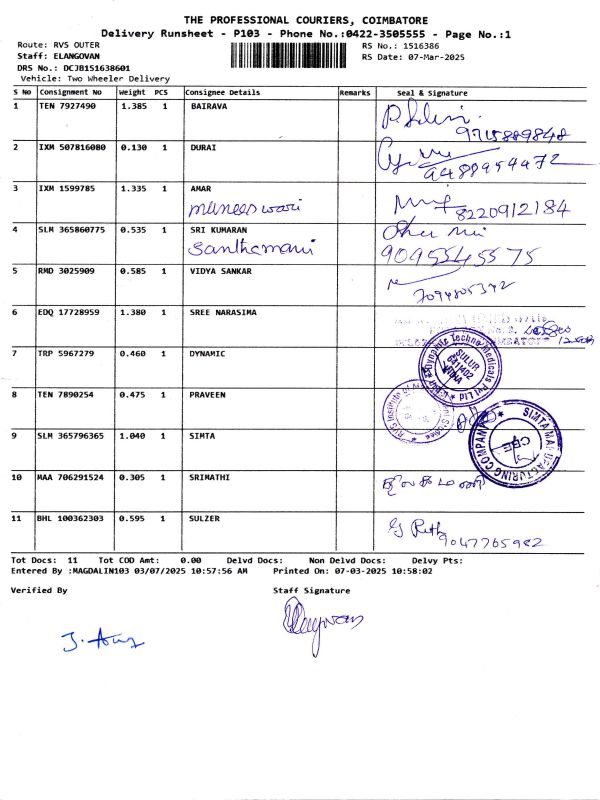 THE PROFESSIONAL COURIERS, COIMBATORE
Delivery Runsheet - P103 - Phone No.:0422-3505555 - Page No.:1
Route: RVS OUTER
RS No.: 1516386
Staff: ELANGOVAN
RS Date: 07-Mar-2025
DRS No.: DCJB151638601
Vehicle: Two Wheeler Delivery
S No Consignment No Weight PCS Consignee Details Remarks Seal & Signature
1 TEN 7927490 1.385 1 BAIRAVA
9715889848
2 IXM 507816080 0.130 1 DURAI
9488959472
3 IXM 1599785 1.335 1 AMAR
muneeswari
8220912184
4 SLM 365860775 0.535 1 SRI KUMARAN
Santhamani
9095545575
5 RMD 3025909 0.585 1 VIDYA SANKAR
7094805392
6 EDQ 17728959 1.380 1 SREE NARASIMA
7 TRP 5967279 0.460 1 DYNAMIC
SULUR
641402
8 TEN 7890254 0.475 1 PRAVEEN
9 SLM 365796365 1.040 1 SIMTA
SIMTA MANUFACTURING COMPANY
CBE
10 MAA 706291524 0.305 1 SRIMATHI
11 BHL 100362303 0.595 1 SULZER
9047765982
Tot Docs: 11 Tot COD Amt: 0.00 Delvd Docs: Non Delvd Docs: Delvy Pts:
Entered By :MAGDALIN103 03/07/2025 10:57:56 AM Printed On: 07-03-2025 10:58:02
Verified By
Staff Signature
Elangovan